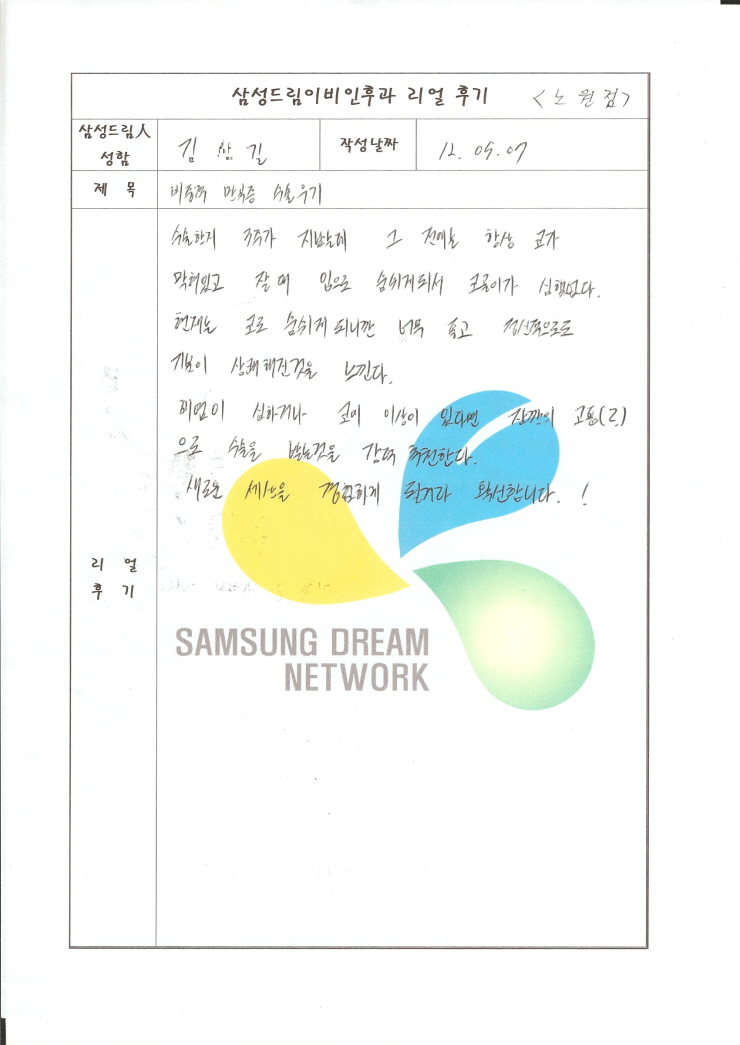 삼성드림이비인후과 리얼 후기 <노원점>
삼성드림人
성함
김 길
작성날짜
12. 05. 07
제 목
비중격 만곡증 수술후기
수술한지 3주가 지났는데 그 전에는 항상 코가
막혀있고 잘때 입으로 숨쉬게되서 코골이가 심했었다.
현재는 코로 숨쉬게 되니깐 너무 좋고 정신적으로도
기분이 상쾌해진것을 느낀다.
비염이 심하거나 코에 이상이 있다면 잠깐의 고통(2)
으로 수술을 받는것을 강력 추천한다.
새로운 세상을 경험하게 될거라 확신합니다. !
리 얼
후 기
SAMSUNG DREAM
NETWORK